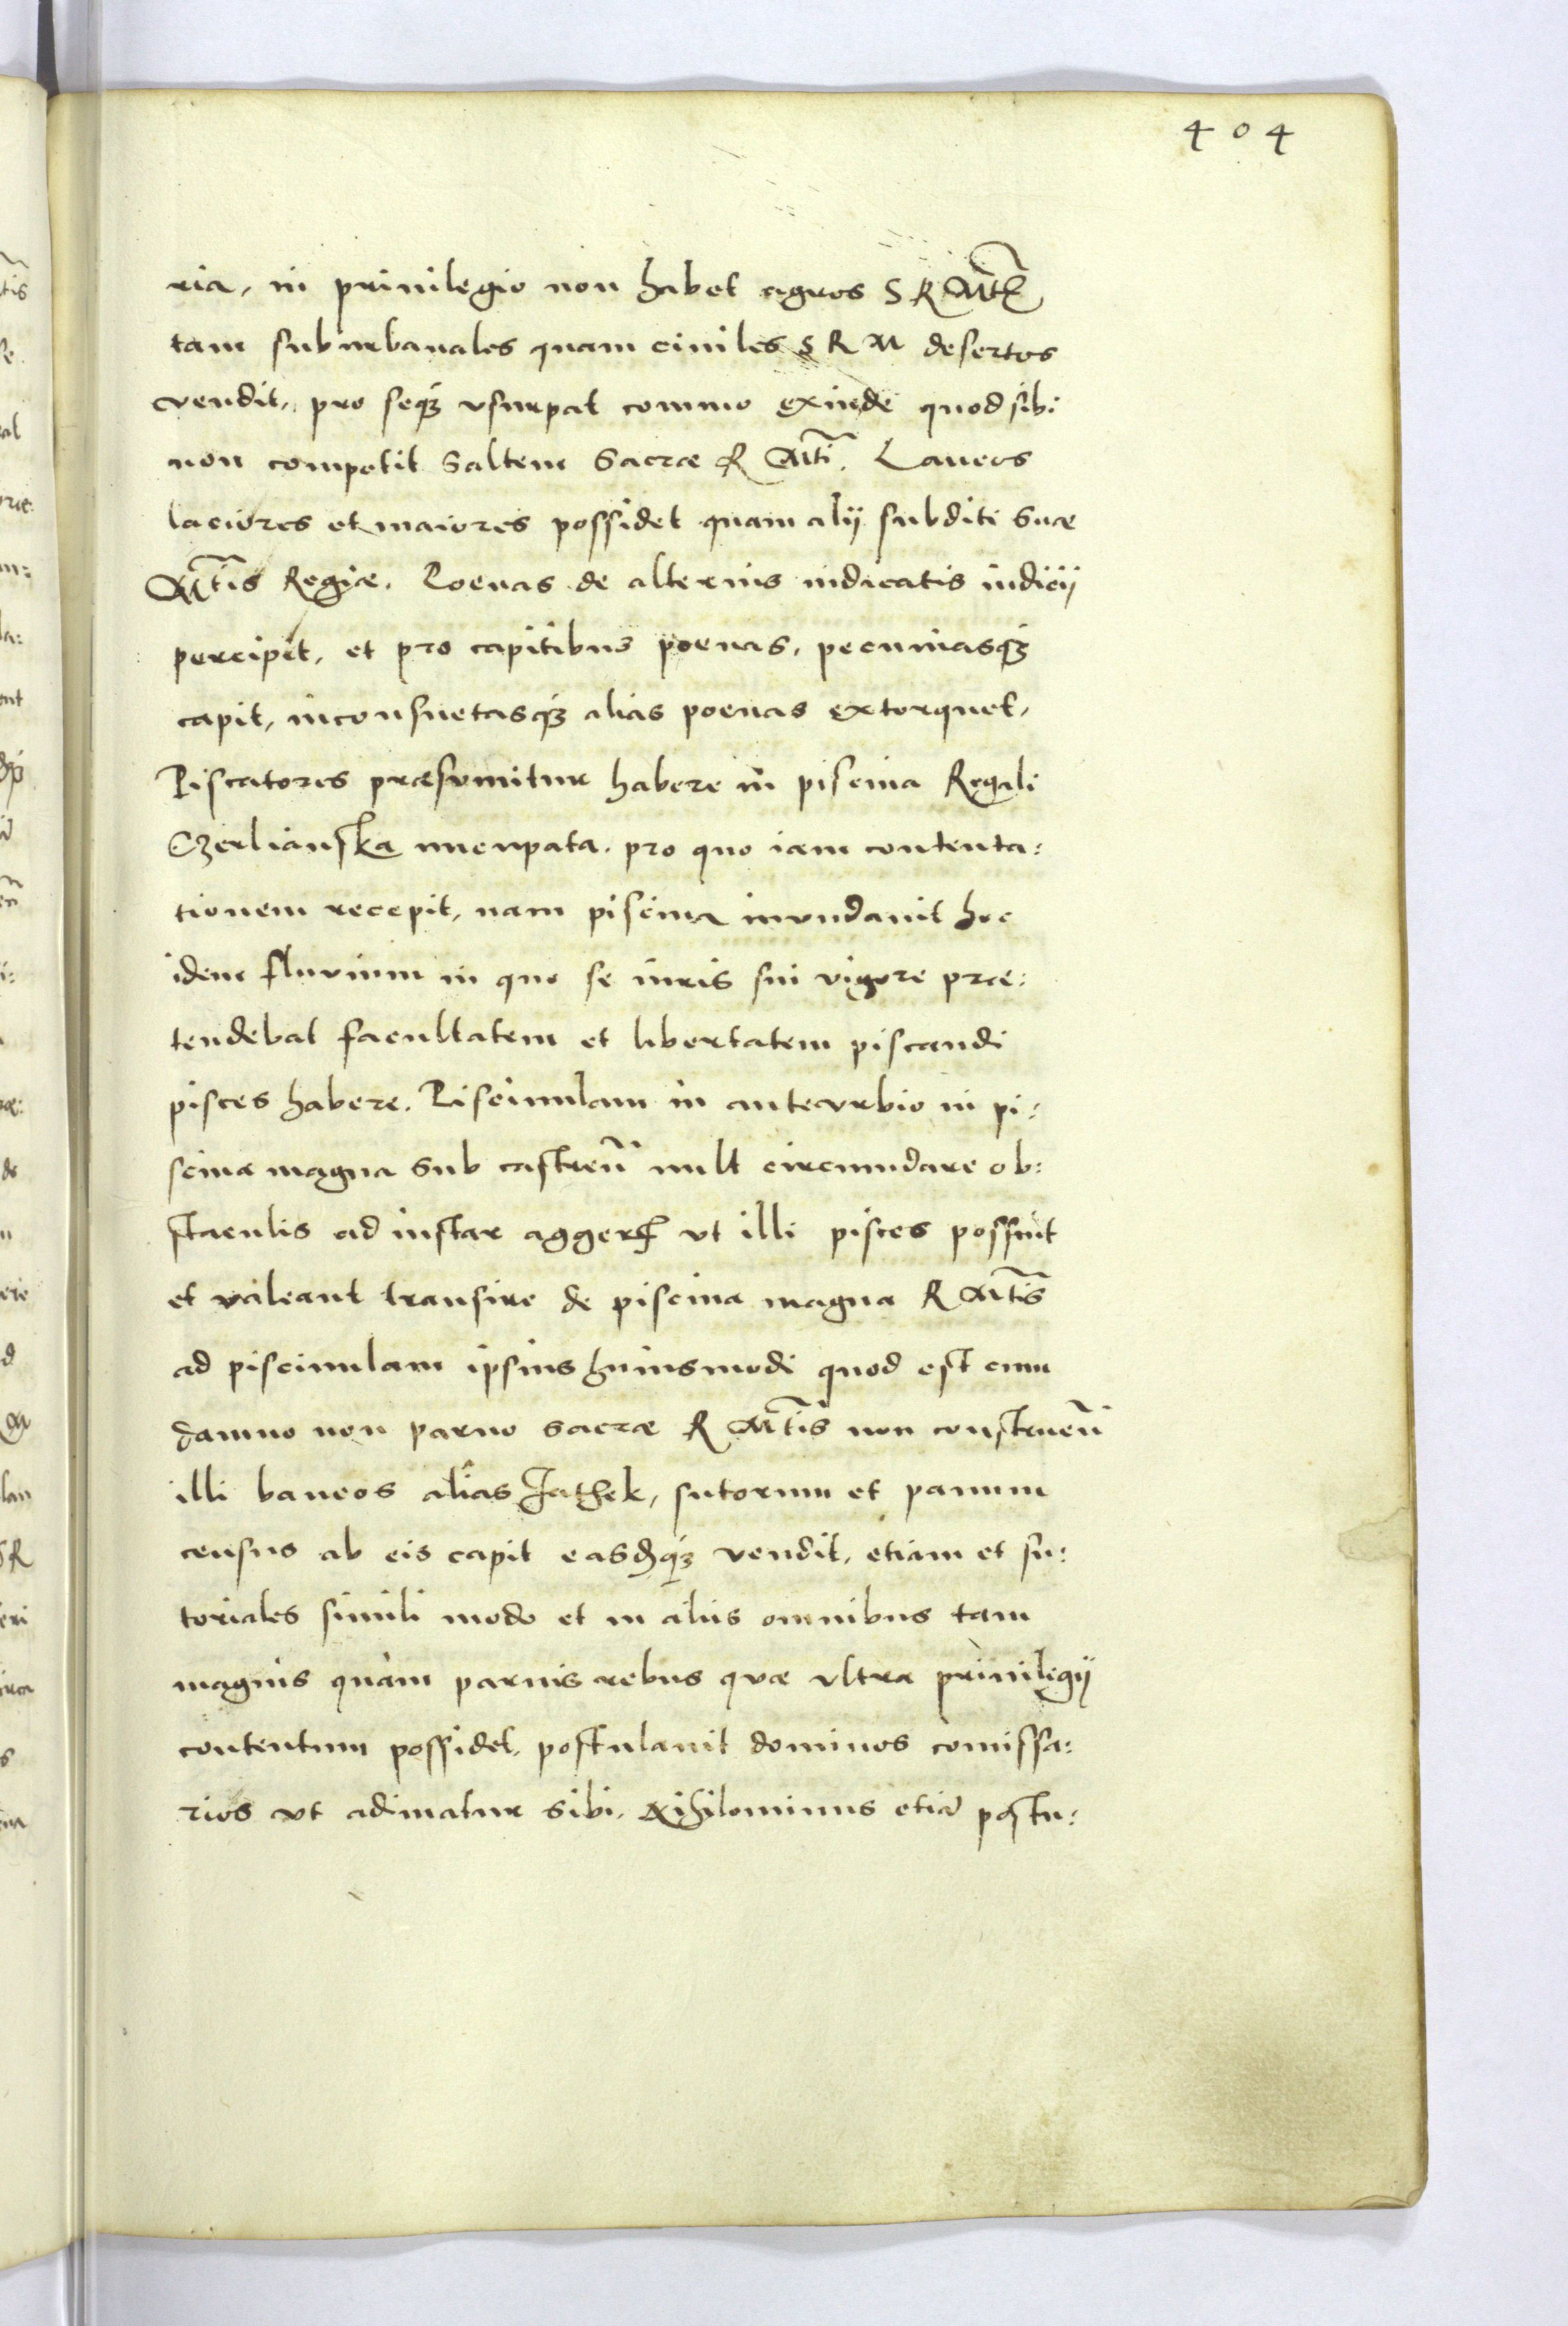 404
ria, in priuilegio non habet agros S R Mtis
tam suburbanales quam ciuiles S R M desertos
vendit, pro seqꝫ vsurpat commo exinde quod sibi
non competit saltem Sacræ R Mti. Laneos
laciores et maiores possidet quam alij subditi suæ
Mtis Regiæ. Poenas de alterius iudicatis iudicij
percipit, et pro capitibus poenas, pecuniasqꝫ
capit, inconsuetasqꝫ alias poenas extorquet,
Piscatores præsumitur habere in piscina Regali
Czerlianska nuncupata. pro quo iam contenta:
tionem recepit, nam piscina inundauit hoc
idem fluuium in quo se iuris sui vigore præ:
tendebat facultatem et libertatem piscandi
pisces habere. Piscinulam in anteurbio in pi:
scina magna sub castreñ uult circumdare ob:
staculis ad instar aggerũ vt illi pisces possint
et valeant transire de piscina magna R Mtis
ad piscinulam ipsius huiusmodi quod est cum
damno non paruo sacræ R Mtis non construeñ
illi bancos alias Jathek, sutorum et panum
census ab eis capit easdqꝫ vendit, etiam et su:
toriales simili modo et in alijs omnibus tam
magnis quàm paruis rebus quæ vltra priuilegij
contentum possidet, postulauit dominos comissa:
rios vt adimatur sibi. Nihilominus etiã postu: